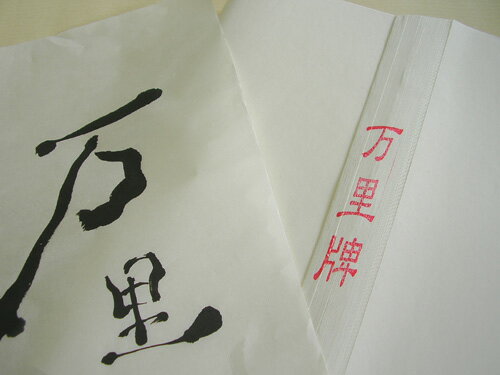 万里
万里牌